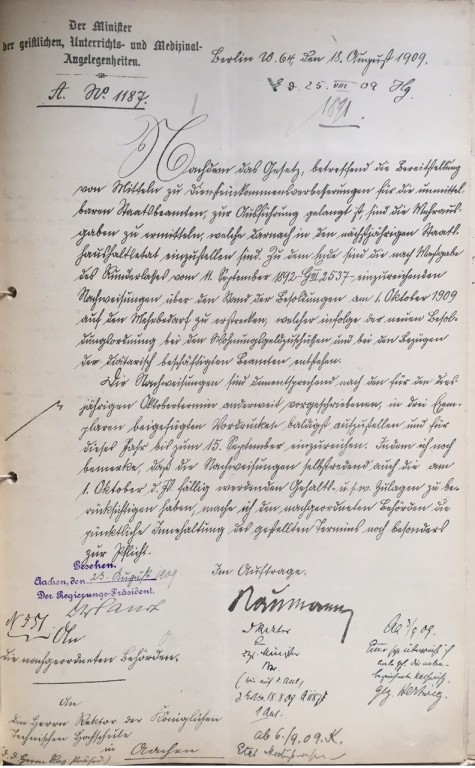 Der Minister
der geistlichen, Unterrichts- und Medizinal-
Angelegenheiten.
A. No 1187.
Berlin W. 64. den 18. August 1909.
25. VIII 09
1891
Nachdem das Gesetz, betreffend die Bereitstellung
von Mitteln zu Diensteinkommensverbesserungen für die unmittel-
baren Staatsbeamten, zur Ausführung gelangt ist, sind die Mehraus-
gaben zu ermitteln, welche darnach in den nächstjährigen Staats-
haushaltsetat einzustellen sind. Zu dem Ende sind die nach Maßgabe
des Runderlasses vom 11. September 1892 - G III 2537 - einzureichenden
Nachweisungen über den Stand der Besoldungen am 1. Oktober 1909
auf den Mehrbedarf zu erstrecken, welcher infolge der neuen Besol-
dungsordnung bei den Wohnungsgeldzuschüssen und bei den Bezügen
der diätarisch beschäftigten Beamten entstehen.
Die Nachweisungen sind dementsprechend nach den für den dies-
jährigen Oktobertermin anderweit vorgeschriebenen, in drei Exem-
plaren beigefügten Vordrucken baldigst aufzustellen und für
dieses Jahr bis zum 15. September einzureichen. Indem ich noch
bemerke, daß die Nachweisungen selbstredend auch die am
1. Oktober d. Js. fällig werdenden Gehalts- u.s.w. Zulagen zu be-
rücksichtigen haben, mache ich den nachgeordneten Behörden die
pünktliche Innehaltung des gestellten Termins noch besonders
zur Pflicht.
Gesehen.
Aachen, den 23. August 1909
Der Regierungs-Präsident.
Im Auftrage.
Naumann
An
die nachgeordneten Behörden.
An
den Herrn Rektor der Königlichen
Technischen Hochschule
in Aachen
ab 6/9. 09. K.